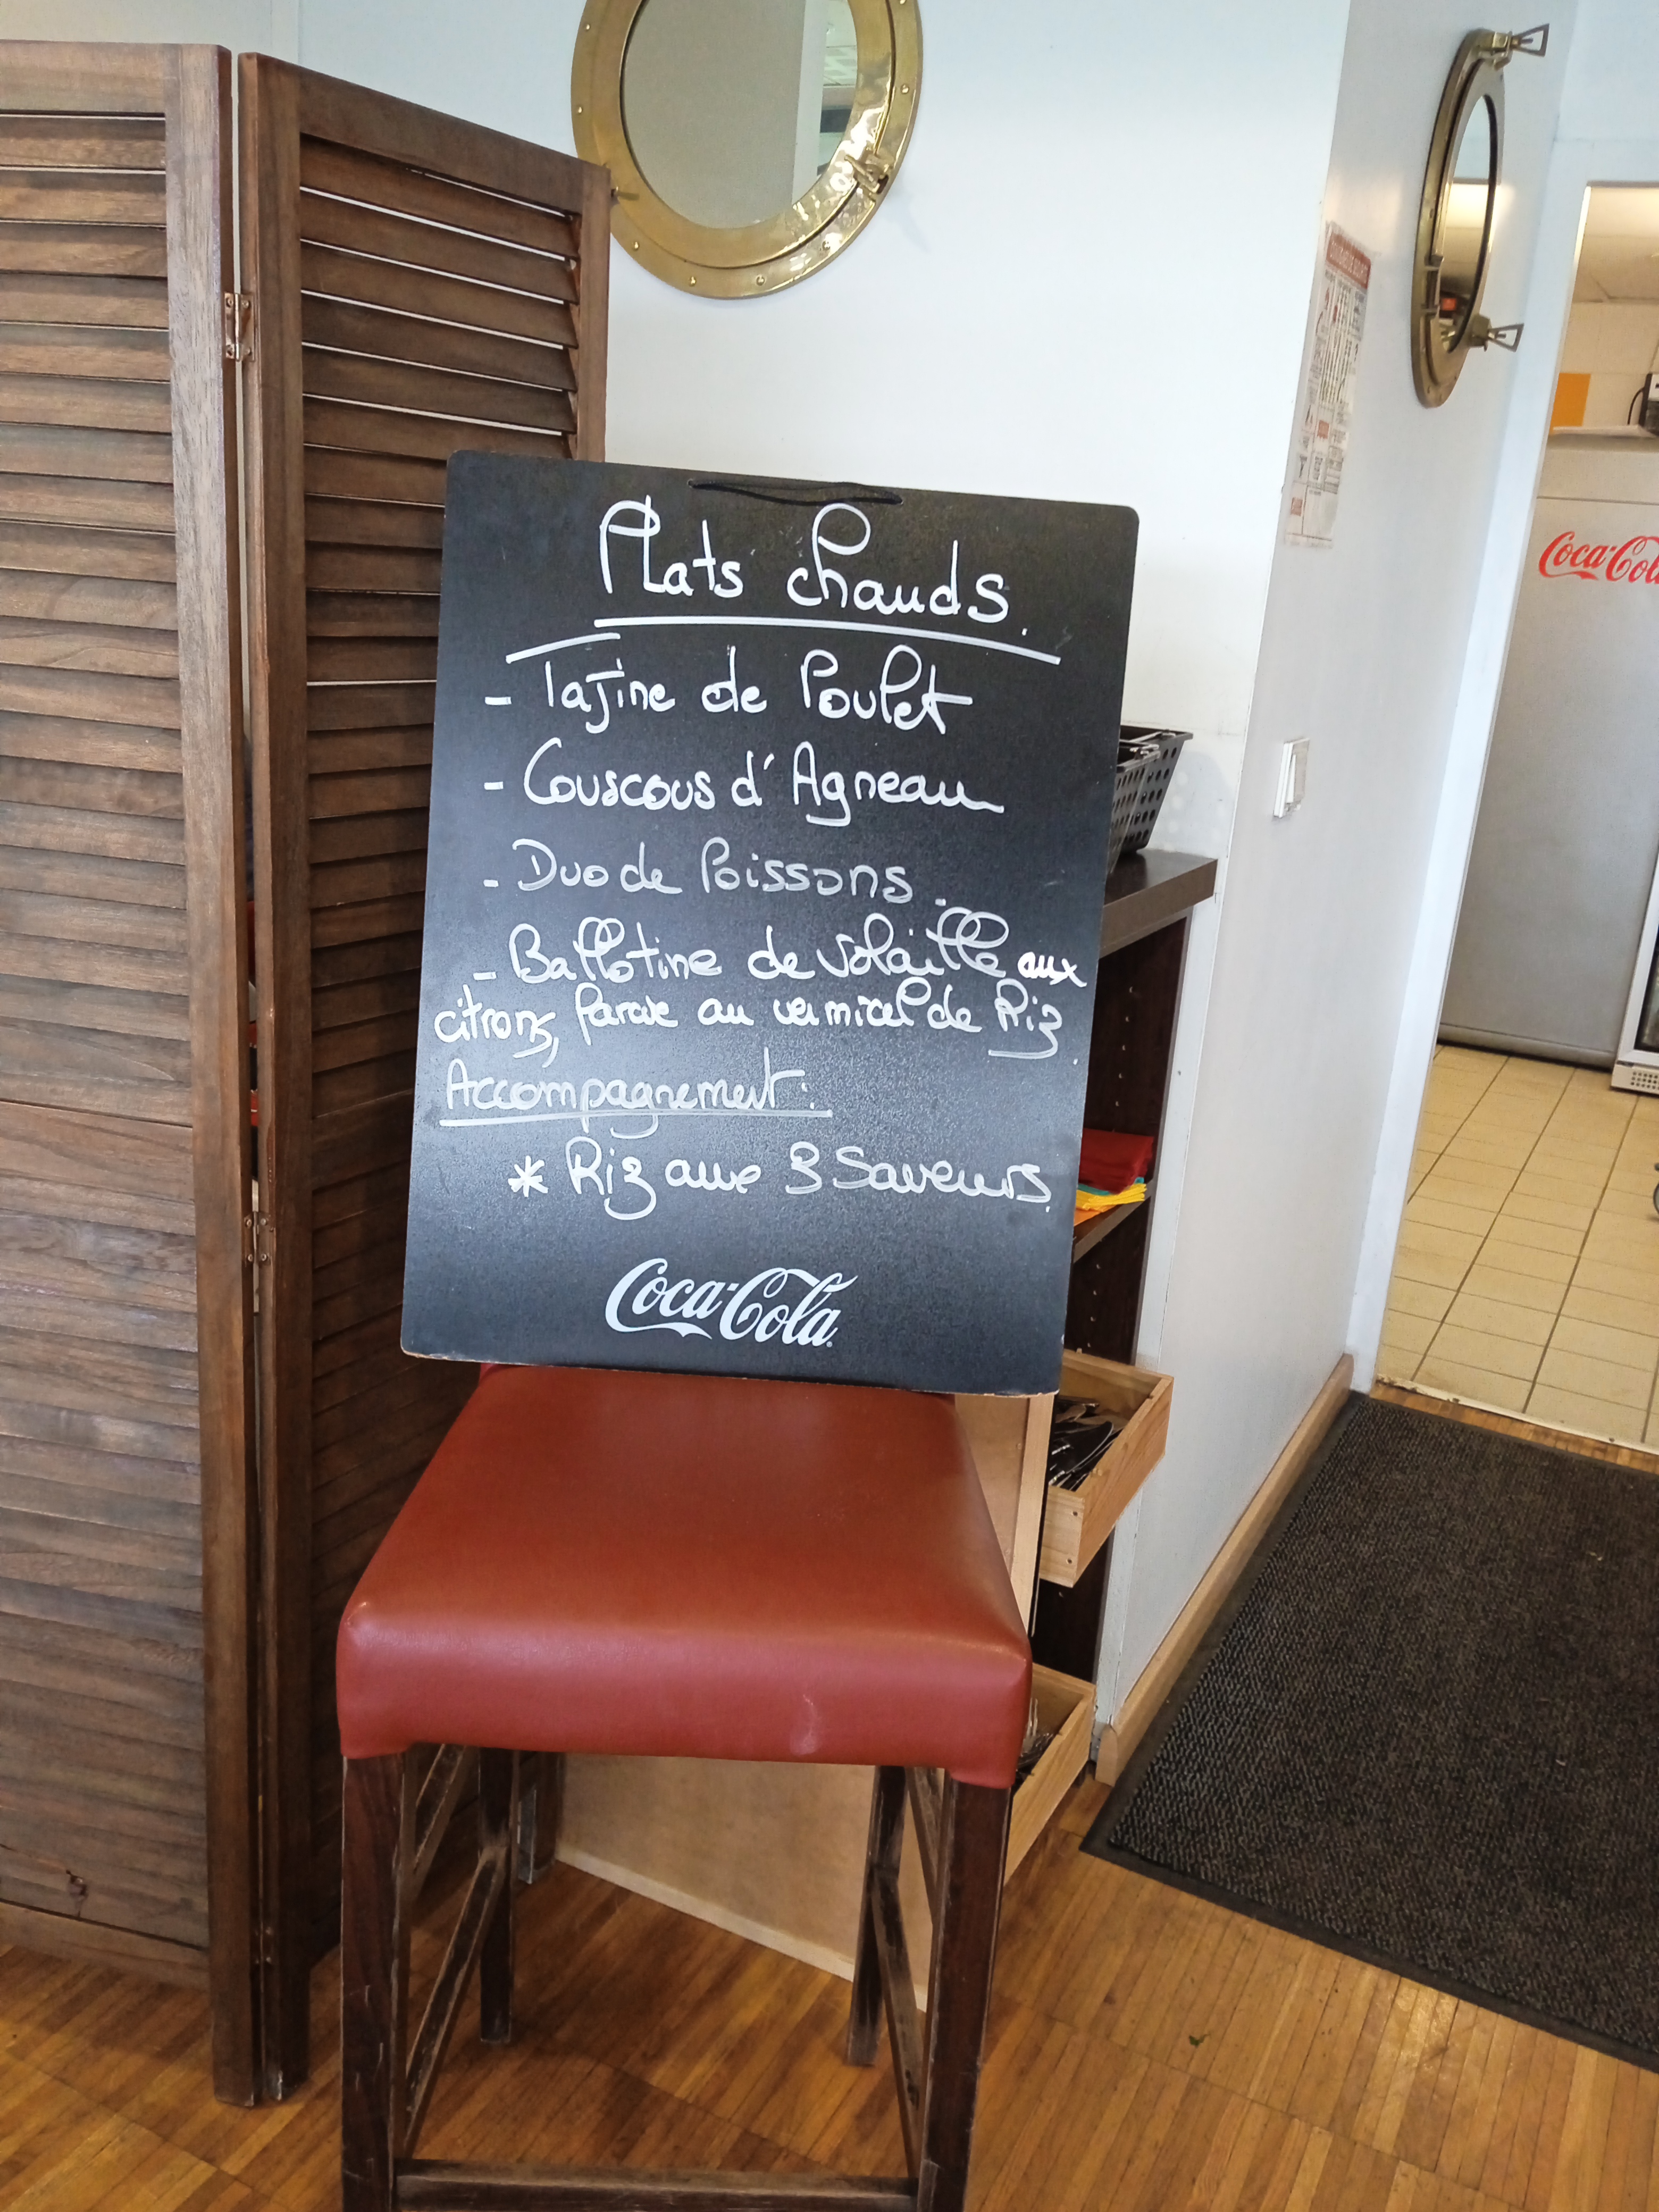 Plats chauds.
- Tajine de Poulet
- Couscous d'Agneau
- Duo de Poissons.
- Ballotine de volaille aux
citrons, farcie au vermicel de Riz.
Accompagnement:
* Riz aux 3 Saveurs.
Coca-Cola
Coca-Cola